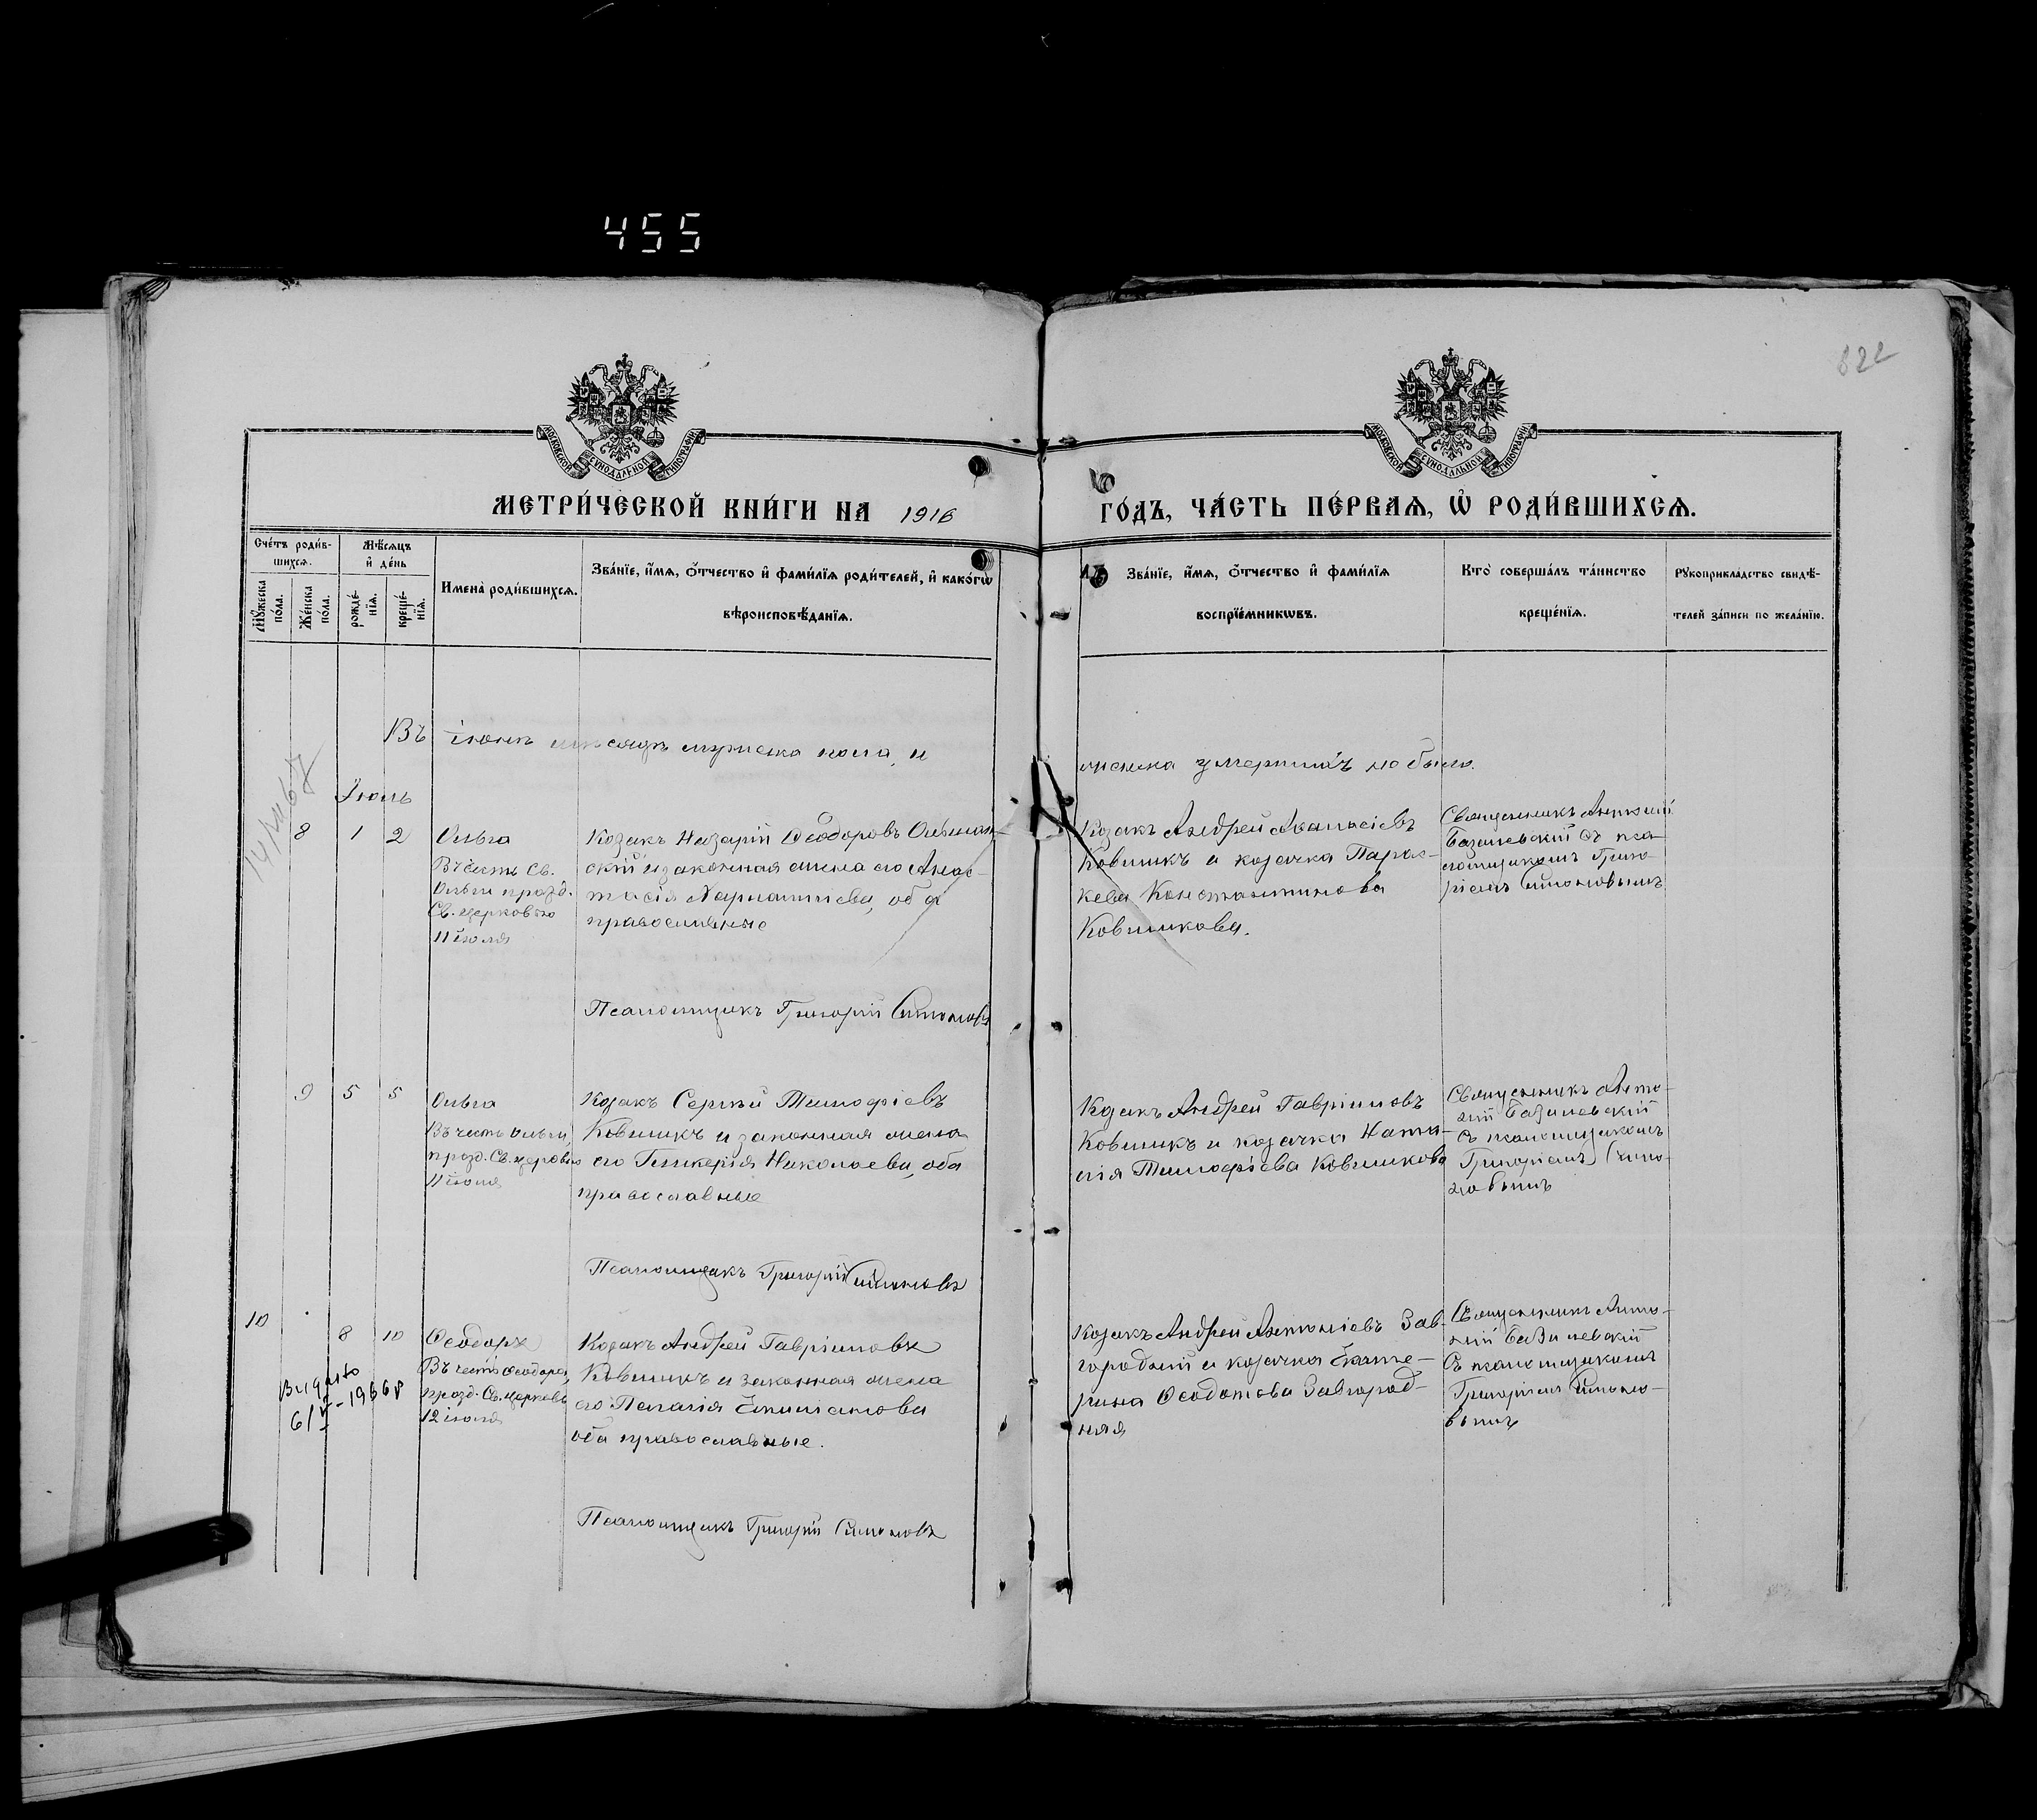 455
822
МОСКОВСКОЙ СѴНОДАЛЬНОЙ ТИПОГРАФІИ
МОСКОВСКОЙ СѴНОДАЛЬНОЙ ТИПОГРАФІИ
МЕТРИ́ЧЕСКОЙ КНИ́ГИ НА 1916
ГО́ДЪ, ЧА́СТЬ ПЕ́РВАѦ, Ѡ҆ РОДИ́ВШИХСѦ.
Сче́тъ роди́в-
шихсѧ.
Мꙋ́жеска
по́ла.
Же́нска
по́ла.
Мѣ́сѧцъ
и҆ де́нь
рожде́-
нїѧ.
креще́-
нїѧ.
Имена̀ роди́вшихсѧ.
Зва́нїе, и҆́мѧ, ѻ҆́тчество и҆ фами́лїѧ роди́телей, и҆ како́гѡ
вѣроисповѣ́данїѧ.
Зва́нїе, и҆́мѧ, ѻ҆́тчество и҆ фами́лїѧ
воспрїе́мникѡвъ.
Кто̀ соверша́лъ та́инство
креще́нїѧ.
Рꙋкоприкла́дство свидѣ́-
телей за́писи по жела́нїю.
Въ іюнѣ мѣсяцѣ мужеска пола, и
женска умершихъ не было.
Іюль
8 1 2
Ольга
Въ честь Св.
Ольги празд.
Св. церковію
11 іюля
Козакъ Назарій Ѳеодоровъ Ольшан-
скій и законная жена его Анас-
тасія Харлампіева, оба
православные
Козакъ Андрей Аѳанасіевъ
Ковшикъ и козачка Парас-
кева Константинова
Ковшикова.
Священникъ Антоній
Базилевскій съ пса-
ломщикомъ Григо-
ріемъ Симоновымъ
Псаломщикъ Григорій Симоновъ
9 5 5
Ольга
Въ честь Ольги,
празд. Св. церковію
11 іюля
Козакъ Сергѣй Тимофіевъ
Ковшикъ и законная жена
его Гликерія Николаева, оба
православные
Козакъ Андрей Гавріиловъ
Ковшикъ и козачка Ната-
лія Тимофіева Ковшикова
Священникъ Анто-
ній Базилевскій
съ псаломщикомъ
Григоріемъ Симо-
новымъ
Псаломщикъ Григорій Симоновъ
10 8 10
Ѳеодоръ
Въ честь Ѳеодора,
празд. Св. церковью
12 іюля
Козакъ Андрей Гавріиловъ
Ковшикъ и законная жена
его Пелагія Емиліанова
оба православные.
Козакъ Андрей Антоніевъ Зав-
городній и козачка Екате-
рина Ѳеодотова Завгород-
няя
Священникъ Анто-
ній Базилевскій
съ псаломщикомъ
Григоріемъ Симоно-
вымъ
Видано
6/V-1966 р
Псаломщикъ Григорій Симоновъ